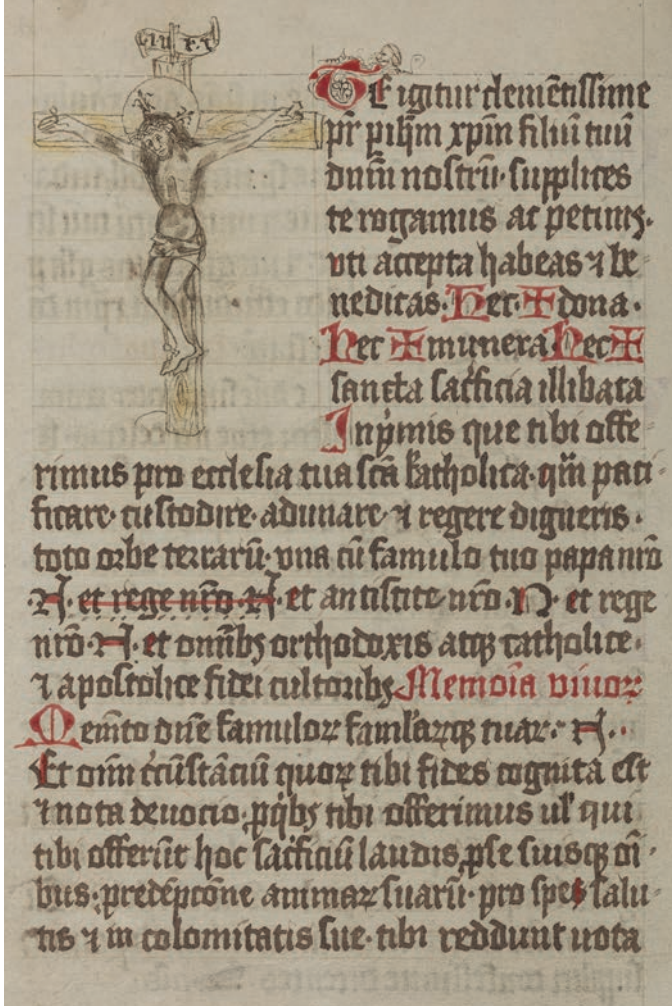 ·i·n·r·i·
TE igitur clemētissime
pr̄ p ih̄m xp̄m filiū tuū
dn̄m nostrū· supplices
te rogamus ac petimꝯ·
vti accepta habeas ⁊ be
nedicas· hec ✠ dona·
hec ✠ munera hec ✠
sancta sac̄ficia illibata
In p̄mis que tibi offe
rimus pro ecclesia tua sc̄a katholica· qm̄ paci
ficare· custodire· adunare· ⁊ regere digneris·
toto orbe terrarū· vna cū famulo tuo papa nr̄o
·N· et rege nr̄o N· et antistite nr̄o· N· et rege
nr̄o· N· et omībꝫ orthodoxis atqꝫ catholice·
⁊ apostolice fidei cultoribꝫ Memoīa viuoꝝ
Mem̄to dn̄e famuloꝝ famĺaꝝqꝫ tuaꝝ· N··
Et omn̄ c̄cūstāciū quoꝝ tibi fides cognita est
⁊ nota deuocio· ꝓ q̄ibꝫ tibi offerimus ul̓ qui
tibi offerūt hoc sac̄ficiū laudis, ꝓ se suisqꝫ oī
bus· p redēpcōne animaꝝ suarū· pro spei salu
tis ⁊ in colomitatis sue· tibi reddunt uota